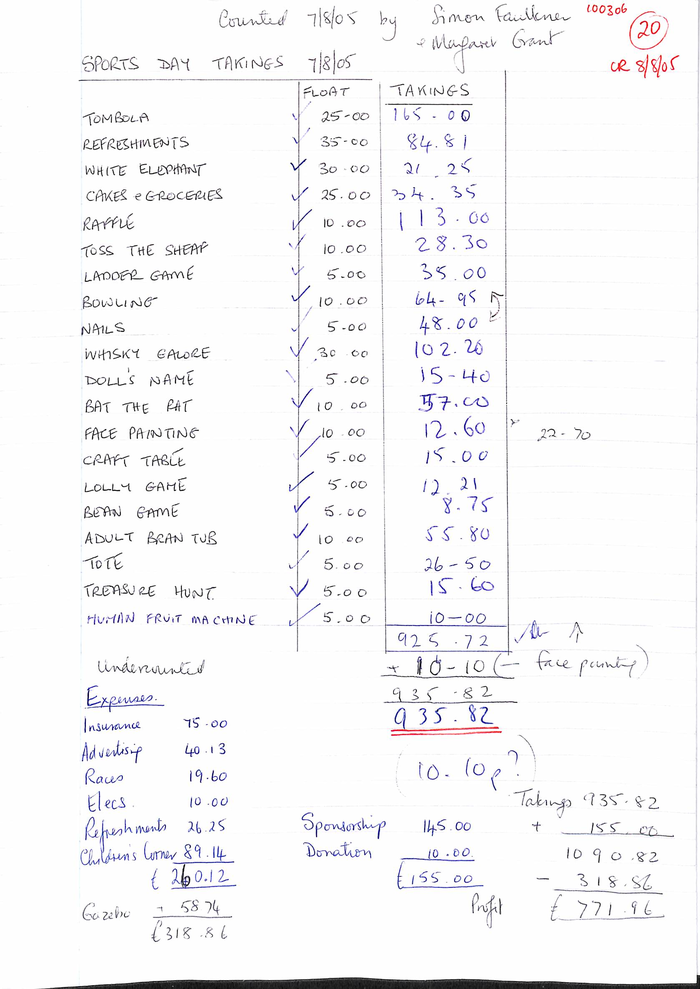 Counted 7/8/05 by Simon Faulkner
& Margaret Grant
100306
20
CR 8/8/05
SPORTS DAY TAKINGS 7/8/05
FLOAT TAKINGS
TOMBOLA ✓ 25-00 165.00
REFRESHMENTS ✓ 35-00 84.81
WHITE ELEPHANT ✓ 30.00 21.25
CAKES & GROCERIES ✓ 25.00 34.35
RAFFLE ✓ 10.00 113.00
TOSS THE SHEAF ✓ 10.00 28.30
LADDER GAME ✓ 5.00 35.00
BOWLING ✓ 10.00 64-95
NAILS ✓ 5-00 48.00
WHISKY GALORE ✓ 30.00 102.20
DOLL'S NAME ✓ 5.00 15-40
BAT THE RAT ✓ 10.00 57.00
FACE PAINTING ✓ 10.00 12.60 22-70
CRAFT TABLE ✓ 5.00 15.00
LOLLY GAME ✓ 5.00 12.21
BEAN GAME ✓ 5.00 8.75
ADULT BRAN TUB ✓ 10 00 55.80
TOTE ✓ 5.00 26-50
TREASURE HUNT ✓ 5.00 15.60
HUMAN FRUIT MACHINE ✓ 5.00 10-00
925.72 ✓ ↑
Undercounted + 10-10 (- face painting)
935.82
935.82
(10.10p?)
Expenses.
Insurance 75.00
Advertising 40.13
Races 19.60
Elecs. 10.00
Refreshments 26.25
Children's Corner 89.14
£260.12
Gazebo + 58 74
£318.86
Sponsorship 145.00
Donation 10.00
£155.00
Takings 935.82
+ 155.00
1090.82
- 318.86
Profit £771.96